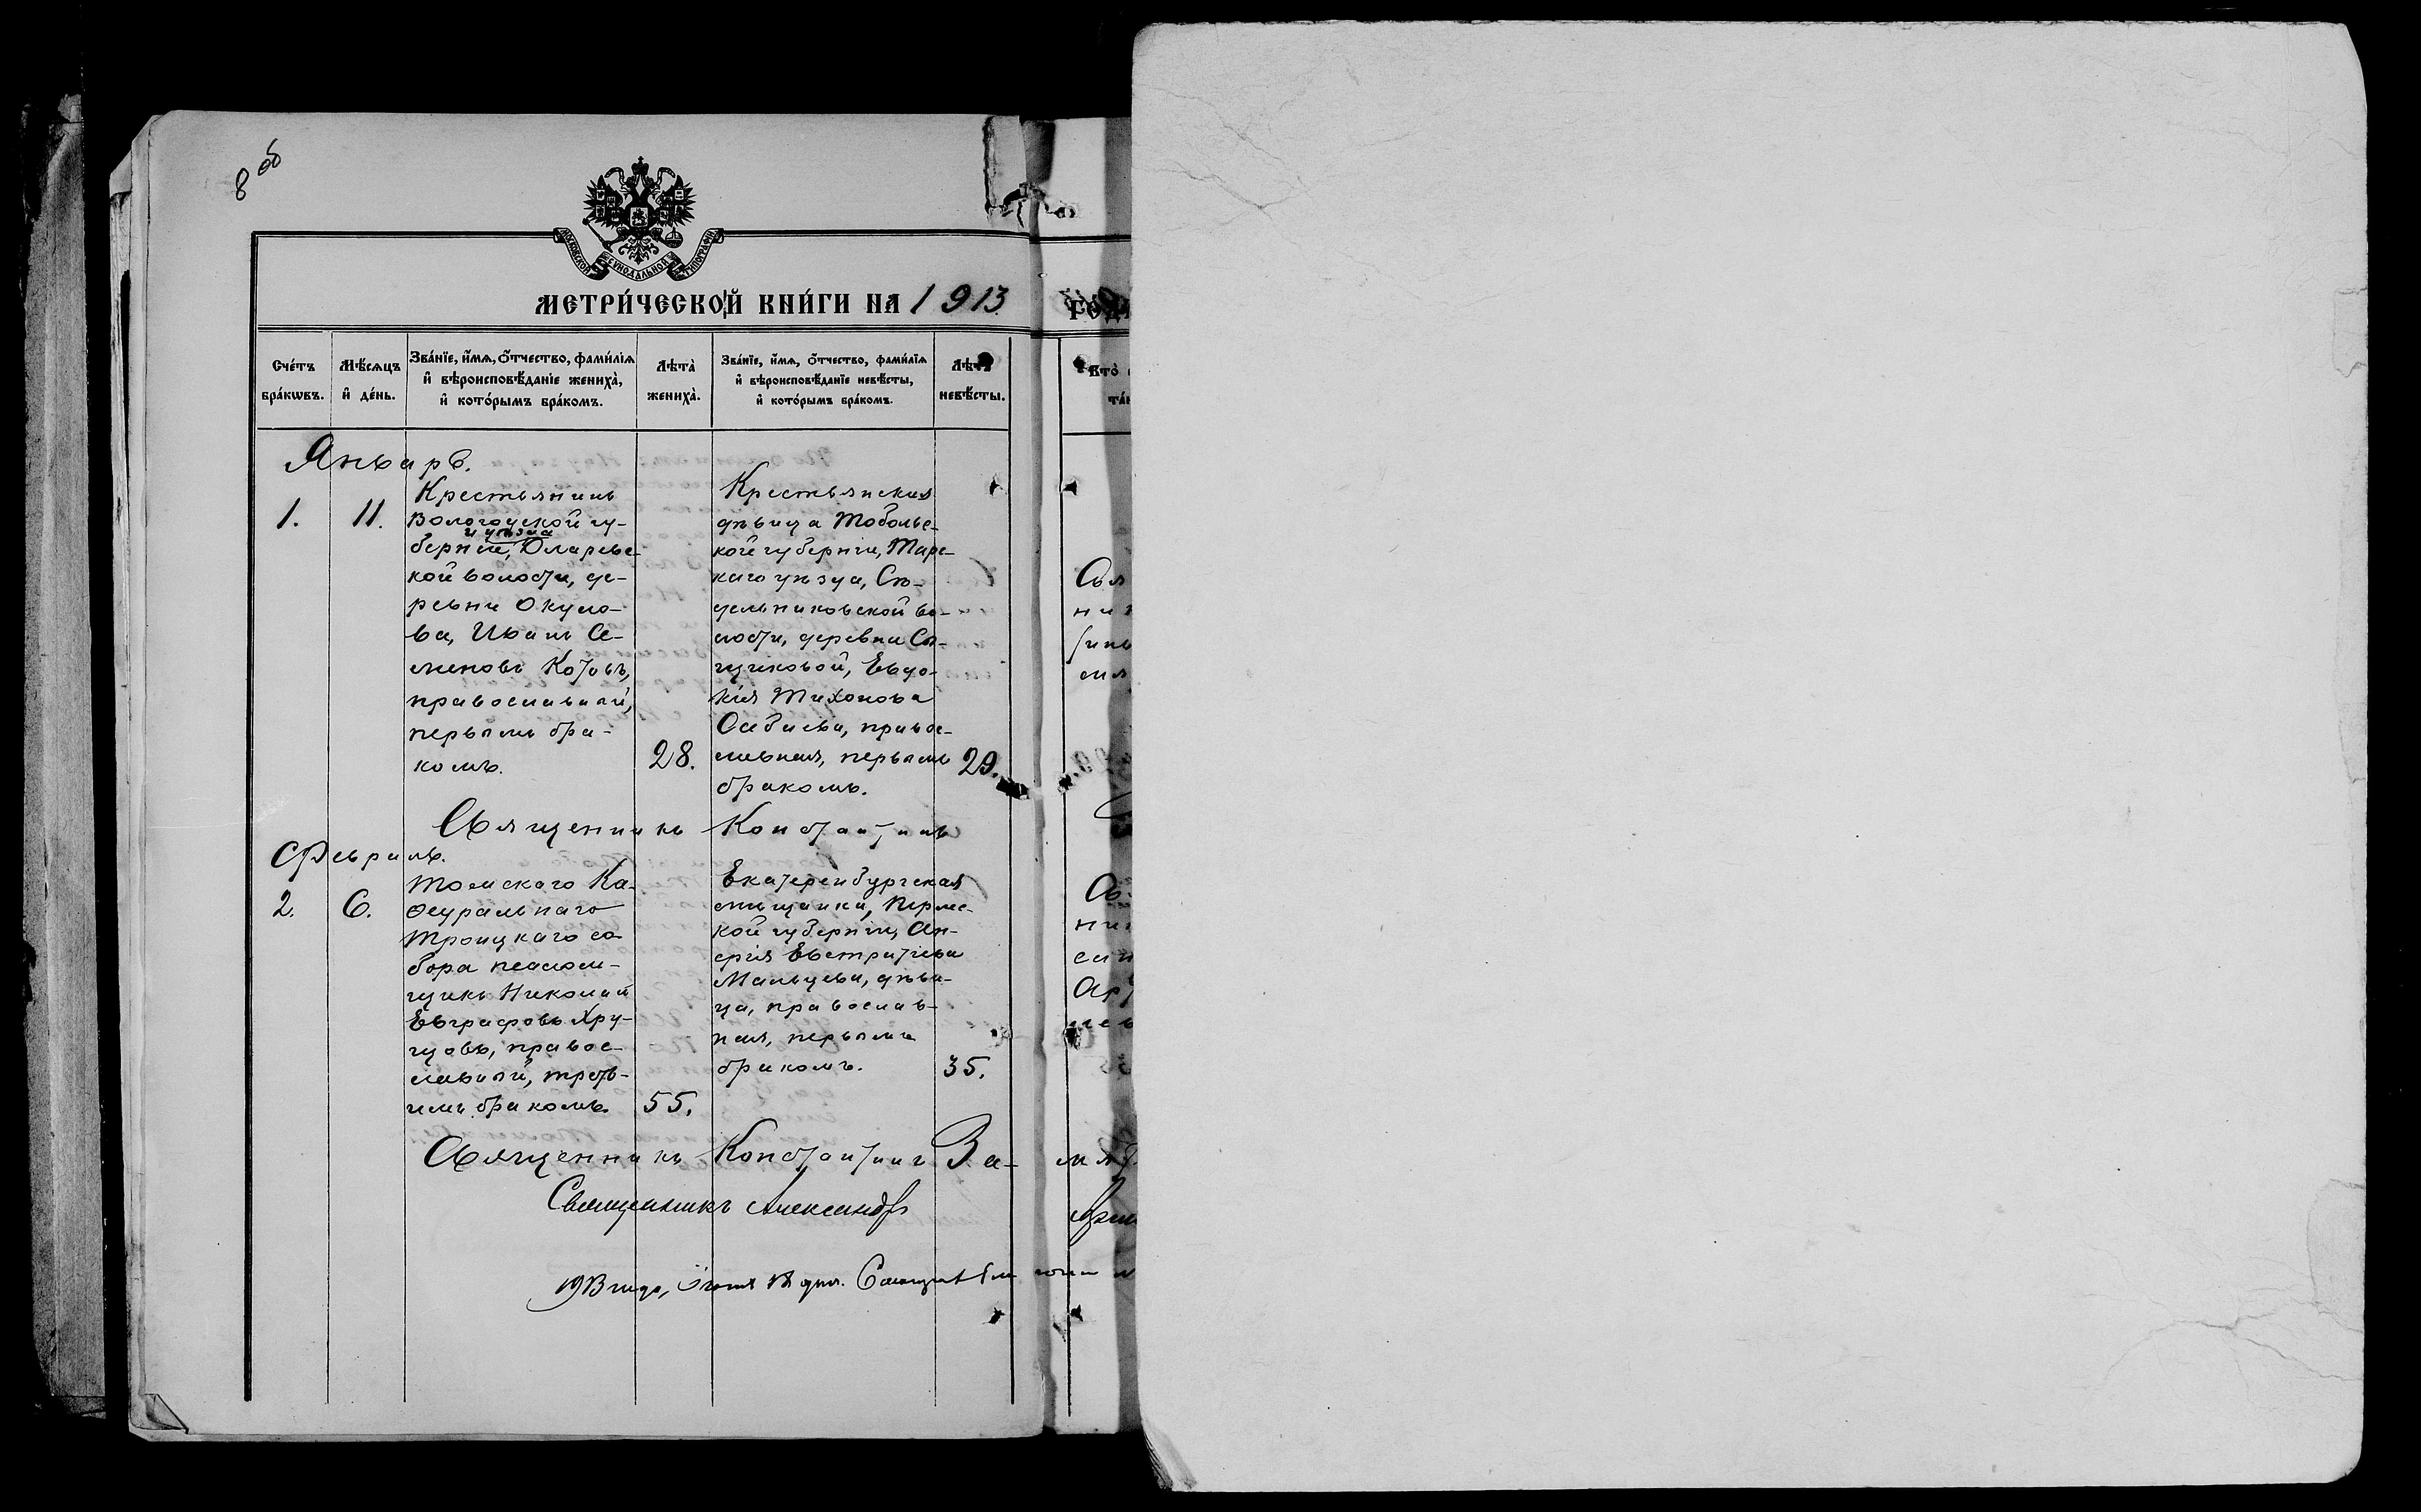 8 об
МОСКОВСКОЙ СѴНОДАЛЬНОЙ ТИПОГРАФІИ
МЕТРИ́ЧЕСКОЙ КНИ́ГИ НА 1913 ГО́Д
Сче́тъ бра́кѡвъ.
Мѣ́сѧцъ и҆ де́нь.
Зва́нїе, и҆́мѧ, ѻ҆́тчество, фами́лїѧ
и҆ вѣроисповѣ́данїе жениха̀,
и҆ кото́рымъ бра́комъ.
Лѣта̀ жениха̀.
Зва́нїе, и҆́мѧ, ѻ҆́тчество, фами́лїѧ
и҆ вѣроисповѣ́данїе невѣ́сты,
и҆ кото́рымъ бра́комъ.
Лѣта̀ невѣ́сты.
Кто̀
Январь.
1. 11.
Крестьянинъ
Вологодской гу-
и уѣзда
берніи,
кой волости, де-
ревни Окуло-
ва, Иванъ Се-
меновъ Котовъ,
православный,
первымъ бра-
комъ.
28.
Крестьянская
дѣвица Тобольс-
кой губерніи, Тарс-
каго уѣзда, Сѣ-
дельниковской во-
лости, деревни
Евдо-
кія Тихонова
право-
славная, первымъ
бракомъ.
29.
Священникъ Константинъ
Февраль.
2. 6.
Томскаго Ка-
ѳедральнаго
Троицкаго со-
бора псалом-
щикъ Николай
Евграфовъ Хру-
щовъ, правос-
лавный, треть-
имъ бракомъ.
55.
Екатеринбургская
мѣщанка, Перм-
ской губерніи,
Евстратіева
Мальцева, дѣви-
ца, православ-
ная, первымъ
бракомъ.
35.
Священникъ Константинъ За-
Священникъ Александръ
1913 года, Іюня 18 дня.